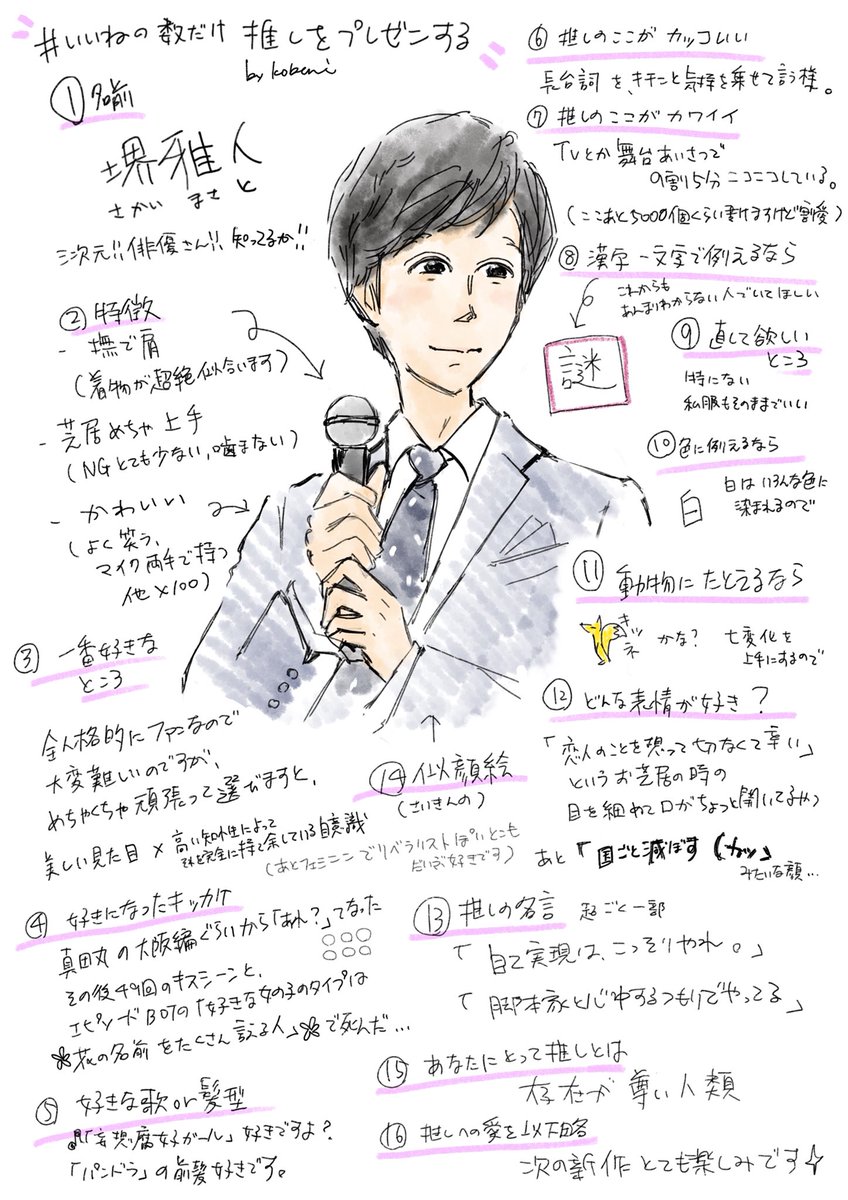 #いいねの数だけ 推しをプレゼンする
by kobeni
① 名前
堺雅人
さかい まさと
三次元!!俳優さん!!知ってるか!!
② 特徴
- 撫で肩
(着物が超絶似合います)
- 芝居めちゃ上手
(NGとても少ない,噛まない)
- かわいい
(よく笑う,
マイク両手で持つ
他×100)
③ 一番好きな
ところ
全人格的にファンなので
大変難しいのですが、
めちゃくちゃ頑張って選びますと、
美しい見た目 × 高い知性によって
持て余している自意識
(あとフェミニンでリベラリストぽいとこも
だいぶ好きです)
④ 好きになったキッカケ
真田丸の大阪編ぐらいから「あれ?」てなった
その後49回のキスシーンと、
エピソードBOTの「好きな女の子のタイプは
花の名前をたくさん言える人」で死んだ…
⑤ 好きな歌or髪型
「妄想腐女子ガール」好きですよ?
「パンドラ」の前髪好きです。
⑥ 推しのここが カッコいい
長台詞を、キチンと気持を乗せて言う様。
⑦ 推しのここが カワイイ
TVとか舞台あいさつで
9割5分ニコニコしている。
(ここあと5000個くらい書けますけど割愛)
⑧ 漢字一文字で例えるなら
これからも
あんまりわからない人でいてほしい
謎
⑨ 直して欲しい
ところ
特にない
私服もそのままでいい
⑩ 色に例えるなら
白 白はいろんな色に
染まれるので
⑪ 動物にたとえるなら
キツネ かな? 七変化を
上手にするので
⑫ どんな表情が好き?
「恋人のことを想って切なくて辛い」
というお芝居の時の
目を細めて口がちょっと開いてるやつ
あと「国ごと滅ぼす(カッ」
みたいな顔…
⑭ 似顔絵
(さいきんの)
⑬ 推しの名言 超ごく一部
「自己実現は、こっそりやれ。」
「脚本家と心中するつもりでやってる」
⑮ あなたにとって推しとは
存在が尊い人類
⑯ 推しへの愛を以下略
次の新作とても楽しみです☆